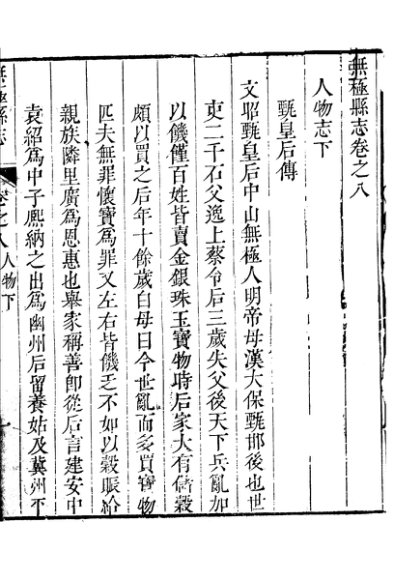 無極縣志卷之八
人物志下
甄皇后傳
文昭甄皇后中山無極人明帝母漢大保甄邯後也世
吏二千石父逸上蔡令后三歲失父後天下兵亂加
以饑僅百姓皆賣金銀珠玉寶物時后家大有儲穀
頗以買之后年十餘歲白母曰今世亂而多買寶物
匹夫無罪懷寶爲罪又左右皆饑乏不如以穀賑給
親族隣里廣爲恩惠也舉家稱善卽從后言建安中
袁紹爲中子熙納之出爲幽州后留養姑及冀州平
無極縣志 卷之八 人物下